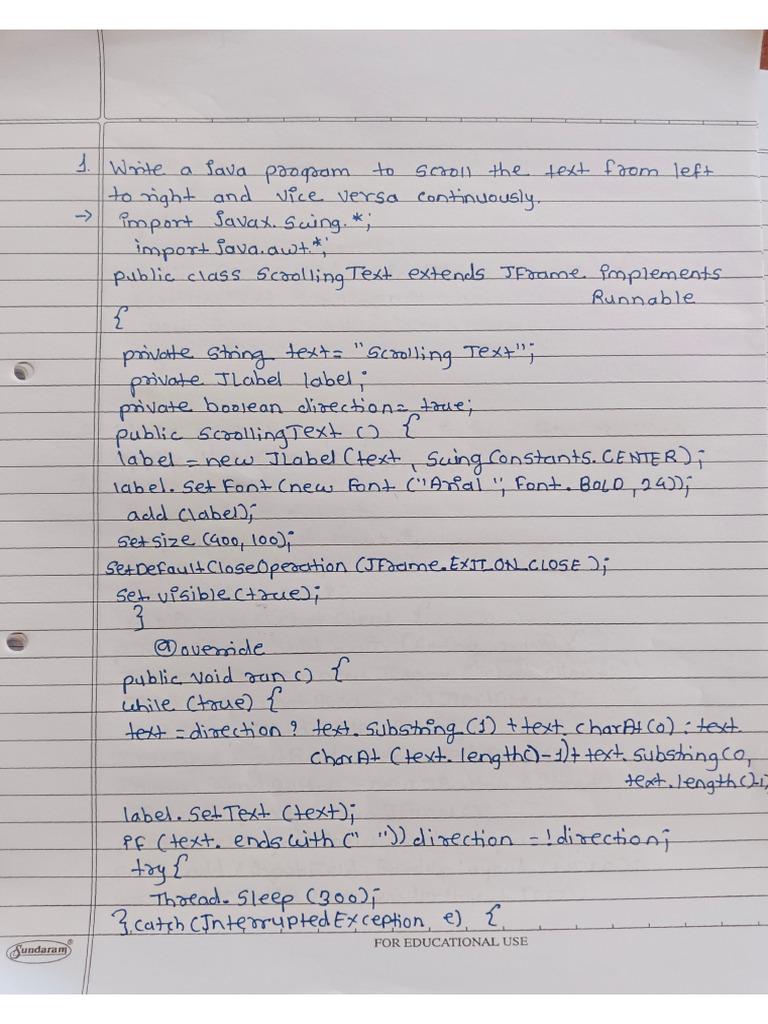 1. Write a Java program to scroll the text from left
to right and vice versa continuously.
→ import Javax.swing.*;
import Java.awt.*;
public class ScrollingText extends JFrame implements
Runnable
{
private String text= "Scrolling Text";
private JLabel label;
private boolean direction= true;
public ScrollingText () {
label = new JLabel (text, SwingConstants.CENTER);
label.setFont (new Font ("Arial", Font.BOLD, 24));
add (label);
setsize (400,100);
setDefaultCloseOperation (JFrame.EXIT_ON_CLOSE);
set visible (true);
}
@override
public void run () {
while (true) {
text = direction ? text.substring (1) + text.charAt(0) : text.
charAt (text.length()-1)+text.substring(0,
text.length()-1;
label.setText (text);
if (text.endswith (" ")) direction = !direction;
try {
Thread.sleep (300);
} catch (InterruptedException e) {
Sundaram®
FOR EDUCATIONAL USE